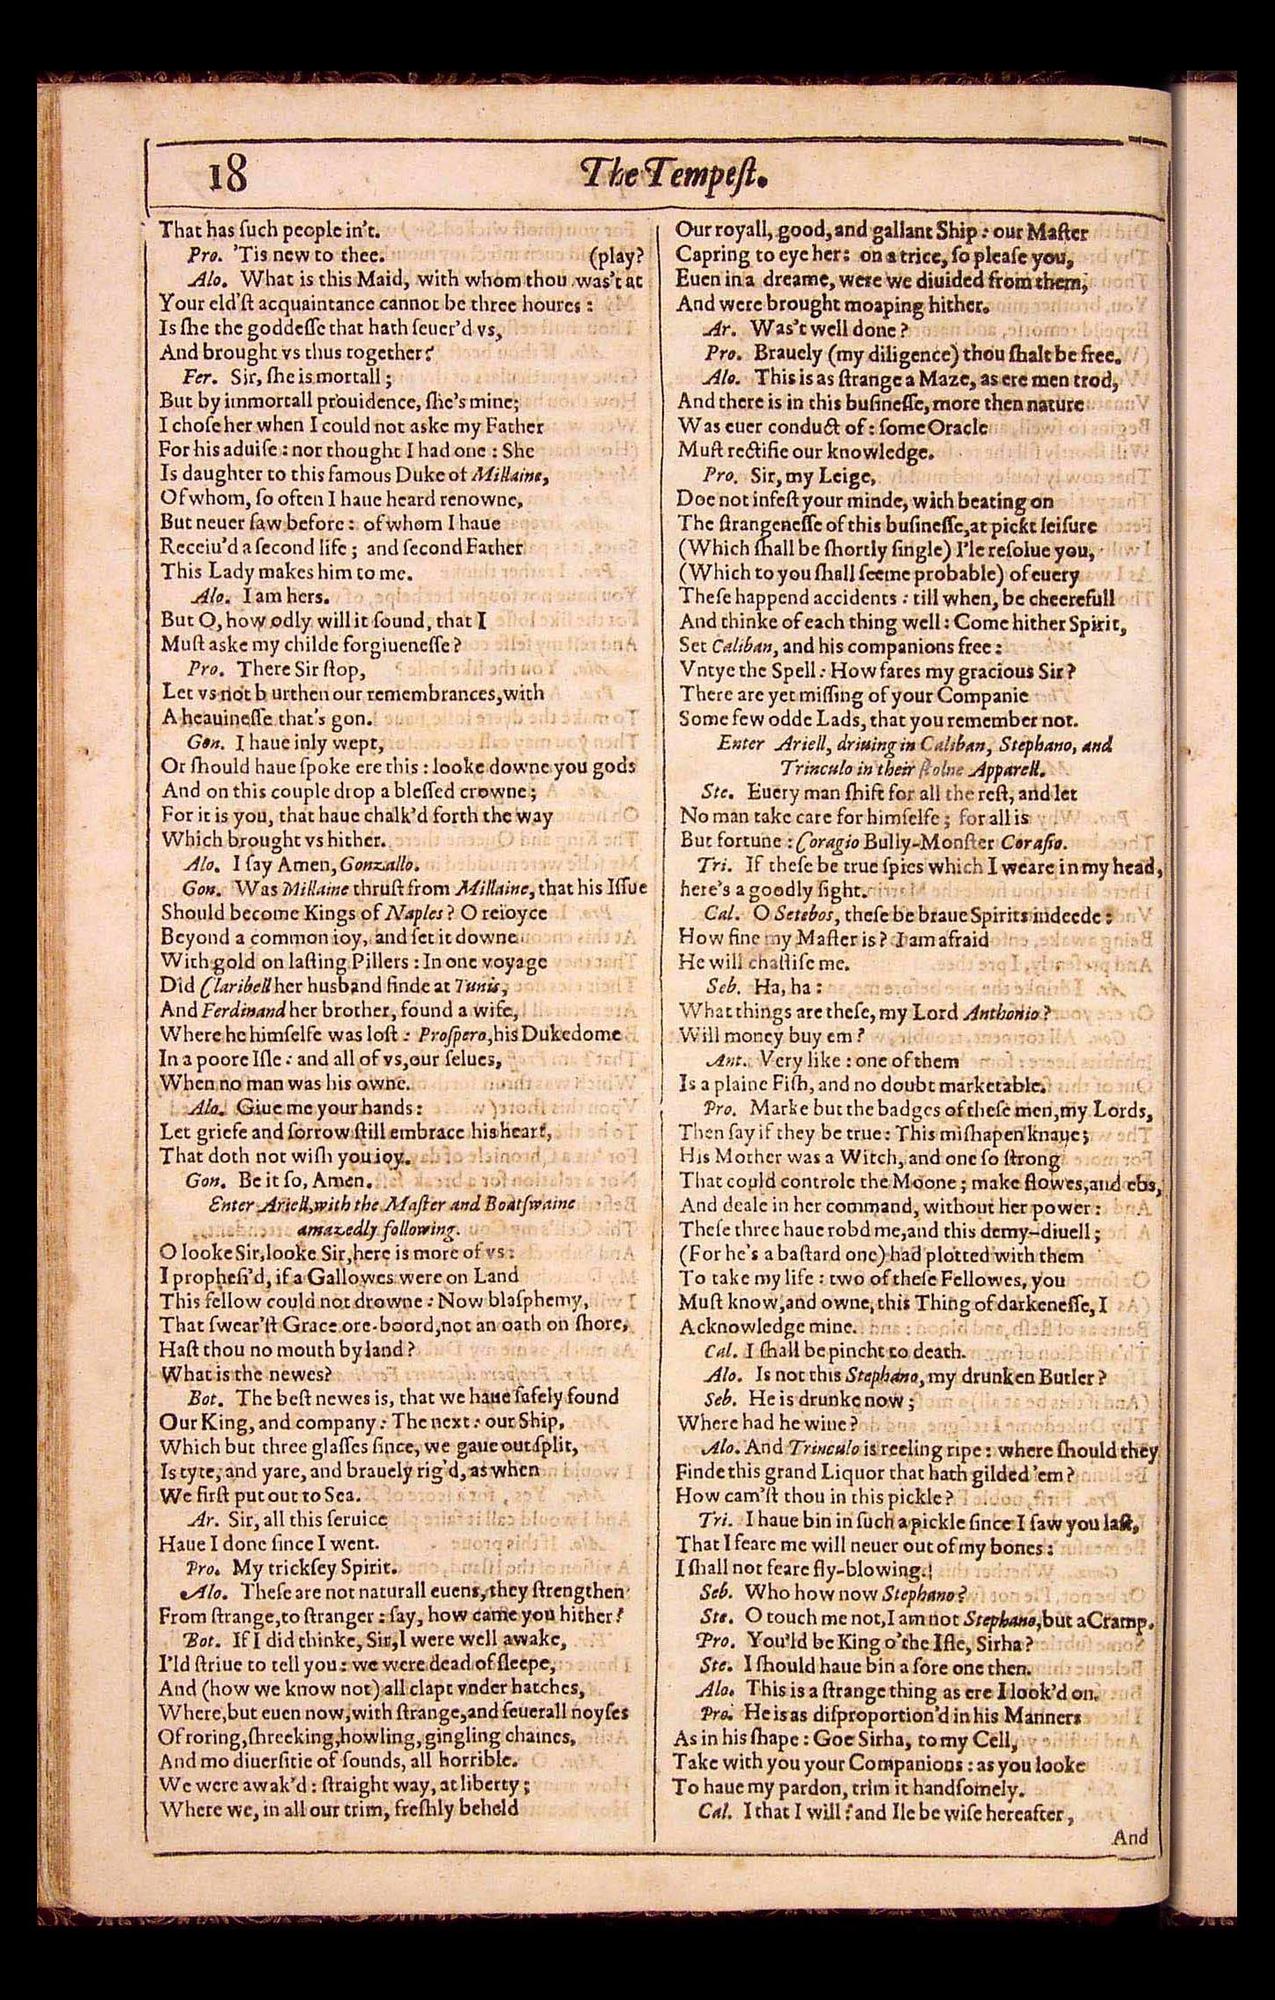 18
The Tempeſt.
That has ſuch people in't.
Pro. 'Tis new to thee. (play?
Alo. What is this Maid, with whom thou was't at
Your eld'ſt acquaintance cannot be three houres :
Is ſhe the goddeſſe that hath ſeuer'd vs,
And brought vs thus together?
Fer. Sir, ſhe is mortall ;
But by immortall prouidence, ſhe's mine;
I choſe her when I could not aske my Father
For his aduiſe : nor thought I had one : She
Is daughter to this famous Duke of Millaine,
Of whom, ſo often I haue heard renowne,
But neuer ſaw before : of whom I haue
Receiu'd a ſecond life ; and ſecond Father
This Lady makes him to me.
Alo. I am hers.
But O, how odly will it ſound, that I
Muſt aske my childe forgiueneſſe?
Pro. There Sir ſtop,
Let vs not burthen our remembrances, with
A heauineſſe that's gon.
Gon. I haue inly wept,
Or ſhould haue ſpoke ere this : looke downe you gods
And on this couple drop a bleſſed crowne ;
For it is you, that haue chalk'd forth the way
Which brought vs hither.
Alo. I ſay Amen, Gonzallo.
Gon. Was Millaine thruſt from Millaine, that his Iſſue
Should become Kings of Naples? O reioyce
Beyond a common ioy, and ſet it downe
With gold on laſting Pillers : In one voyage
Did Claribell her husband finde at Tunis,
And Ferdinand her brother, found a wife,
Where he himſelfe was loſt : Proſpero, his Dukedome
In a poore Iſle : and all of vs, our ſelues,
When no man was his owne.
Alo. Giue me your hands :
Let griefe and ſorrow ſtill embrace his heart,
That doth not wiſh you ioy.
Gon. Be it ſo, Amen.
Enter Ariell, with the Maſter and Boatſwaine
amazedly following.
O looke Sir, looke Sir, here is more of vs :
I propheſi'd, if a Gallowes were on Land
This fellow could not drowne : Now blaſphemy,
That ſwear'ſt Grace ore-boord, not an oath on ſhore,
Haſt thou no mouth by land?
What is the newes?
Bot. The beſt newes is, that we haue ſafely found
Our King, and company : The next : our Ship,
Which but three glaſſes ſince, we gaue out ſplit,
Is tyte, and yare, and brauely rig'd, as when
We firſt put out to Sea.
Ar. Sir, all this ſeruice
Haue I done ſince I went.
Pro. My trickſey Spirit.
Alo. Theſe are not naturall euens, they ſtrengthen
From ſtrange, to ſtranger : ſay, how came you hither?
Bot. If I did thinke, Sir, I were well awake,
I'ld ſtriue to tell you : we were dead of ſleepe,
And (how we know not) all clapt vnder hatches,
Where, but euen now, with ſtrange, and ſeuerall noyſes
Of roring, ſhreeking, howling, gingling chaines,
And mo diuerſitie of ſounds, all horrible.
We were awak'd : ſtraight way, at liberty ;
Where we, in all our trim, freſhly beheld
Our royall, good, and gallant Ship : our Maſter
Capring to eye her : on a trice, ſo pleaſe you,
Euen in a dreame, were we diuided from them,
And were brought moaping hither.
Ar. Was't well done?
Pro. Brauely (my diligence) thou ſhalt be free.
Alo. This is as ſtrange a Maze, as ere men trod,
And there is in this buſineſſe, more then nature
Was euer conduct of : ſome Oracle
Muſt rectifie our knowledge.
Pro. Sir, my Leige,
Doe not infeſt your minde, with beating on
The ſtrangeneſſe of this buſineſſe, at pickt leiſure
(Which ſhall be ſhortly ſingle) I'le reſolue you,
(Which to you ſhall ſeeme probable) of euery
Theſe happend accidents : till when, be cheerefull
And thinke of each thing well : Come hither Spirit,
Set Caliban, and his companions free :
Vntye the Spell : How fares my gracious Sir?
There are yet miſſing of your Companie
Some few odde Lads, that you remember not.
Enter Ariell, driuing in Caliban, Stephano, and
Trinculo in their ſtolne Apparell.
Ste. Euery man ſhift for all the reſt, and let
No man take care for himſelfe ; for all is
But fortune : Coragio Bully-Monſter Coraſio.
Tri. If theſe be true ſpies which I weare in my head,
here's a goodly ſight.
Cal. O Setebos, theſe be braue Spirits indeede :
How fine my Maſter is? I am afraid
He will chaſtiſe me.
Seb. Ha, ha :
What things are theſe, my Lord Anthonio?
Will money buy em?
Ant. Very like : one of them
Is a plaine Fiſh, and no doubt marketable.
Pro. Marke but the badges of theſe men, my Lords,
Then ſay if they be true : This miſhapen knaue;
His Mother was a Witch, and one ſo ſtrong
That could controle the Moone ; make flowes, and ebs,
And deale in her command, without her power :
Theſe three haue robd me, and this demy-diuell ;
(For he's a baſtard one) had plotted with them
To take my life : two of theſe Fellowes, you
Muſt know, and owne, this Thing of darkeneſſe, I
Acknowledge mine.
Cal. I ſhall be pincht to death.
Alo. Is not this Stephano, my drunken Butler?
Seb. He is drunke now ;
Where had he wine?
Alo. And Trinculo is reeling ripe : where ſhould they
Finde this grand Liquor that hath gilded 'em?
How cam'ſt thou in this pickle?
Tri. I haue bin in ſuch a pickle ſince I ſaw you laſt,
That I feare me will neuer out of my bones :
I ſhall not feare fly-blowing.
Seb. Who how now Stephano?
Ste. O touch me not, I am not Stephano, but a Cramp.
Pro. You'ld be King o'the Iſle, Sirha?
Ste. I ſhould haue bin a ſore one then.
Alo. This is a ſtrange thing as ere I look'd on.
Pro. He is as diſproportion'd in his Manners
As in his ſhape : Goe Sirha, to my Cell,
Take with you your Companions : as you looke
To haue my pardon, trim it handſomely.
Cal. I that I will : and Ile be wiſe hereafter,
And